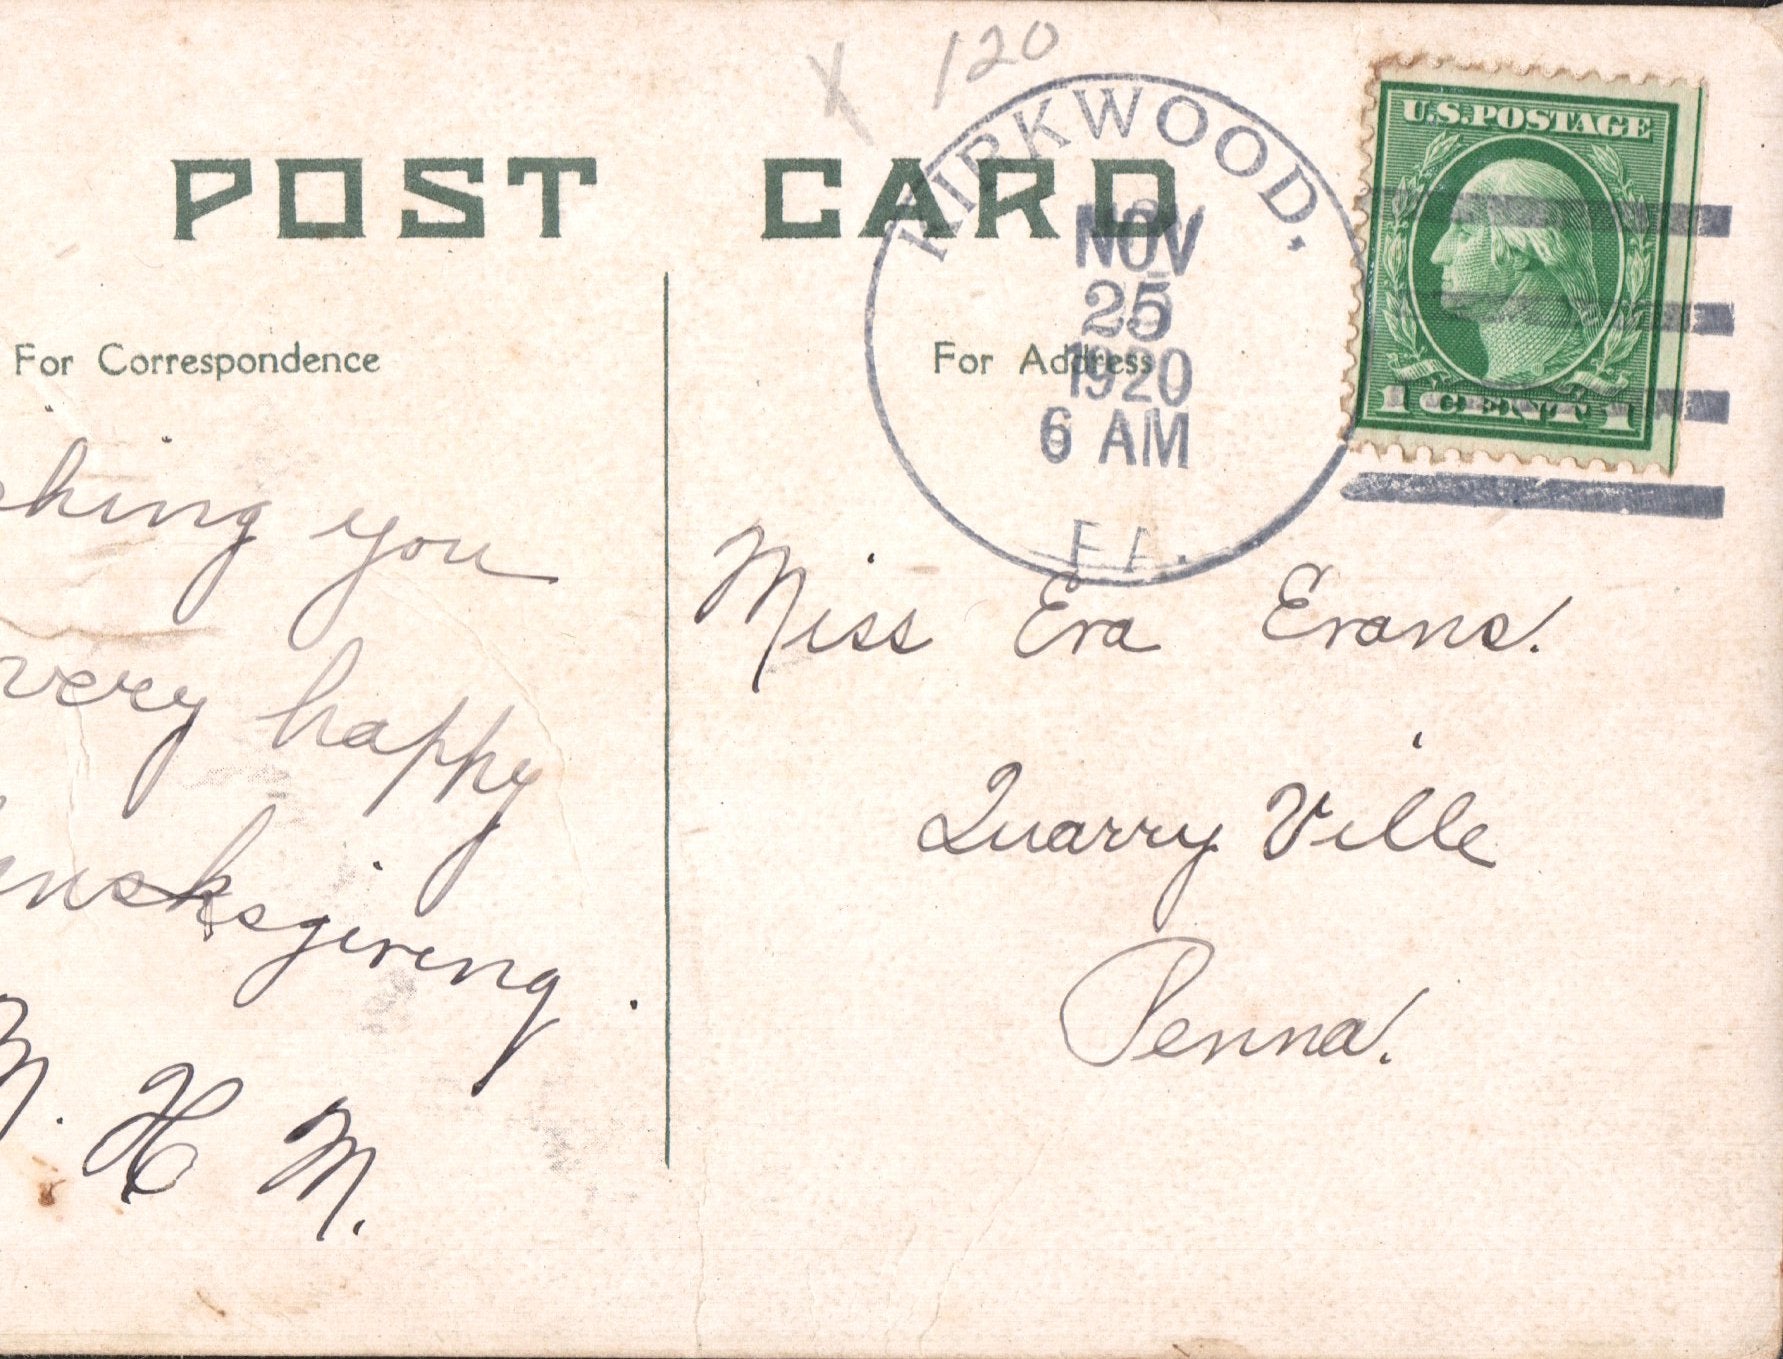 X 120
POST CARD
KIRKWOOD.
NOV
25
1920
6 AM
PA.
U.S.POSTAGE
1 CENT 1
For Correspondence
shing you
very happy
anksgiving.
M. H M.
For Address
Miss Eva Evans.
Quarry Ville
Penna.